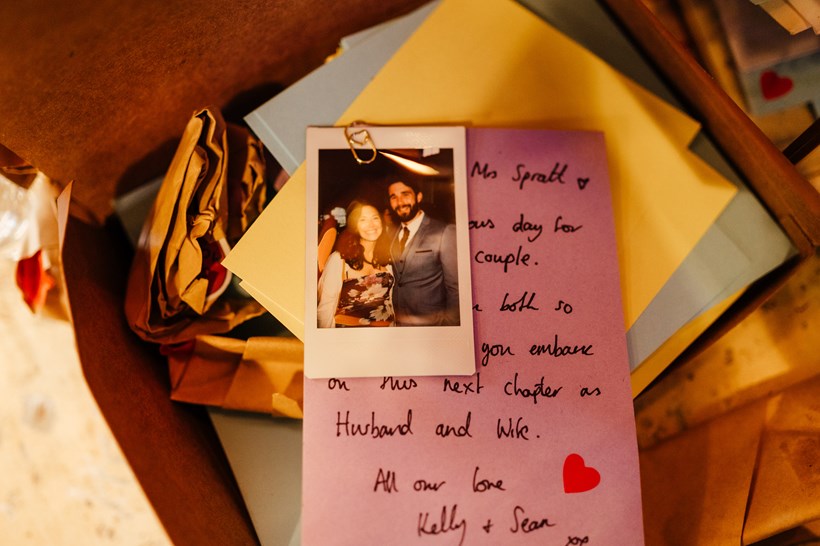 Mrs Spratt
day for
couple.
both so
you embark
on this next chapter as
Husband and Wife.
All our love
Kelly + Sean
xx